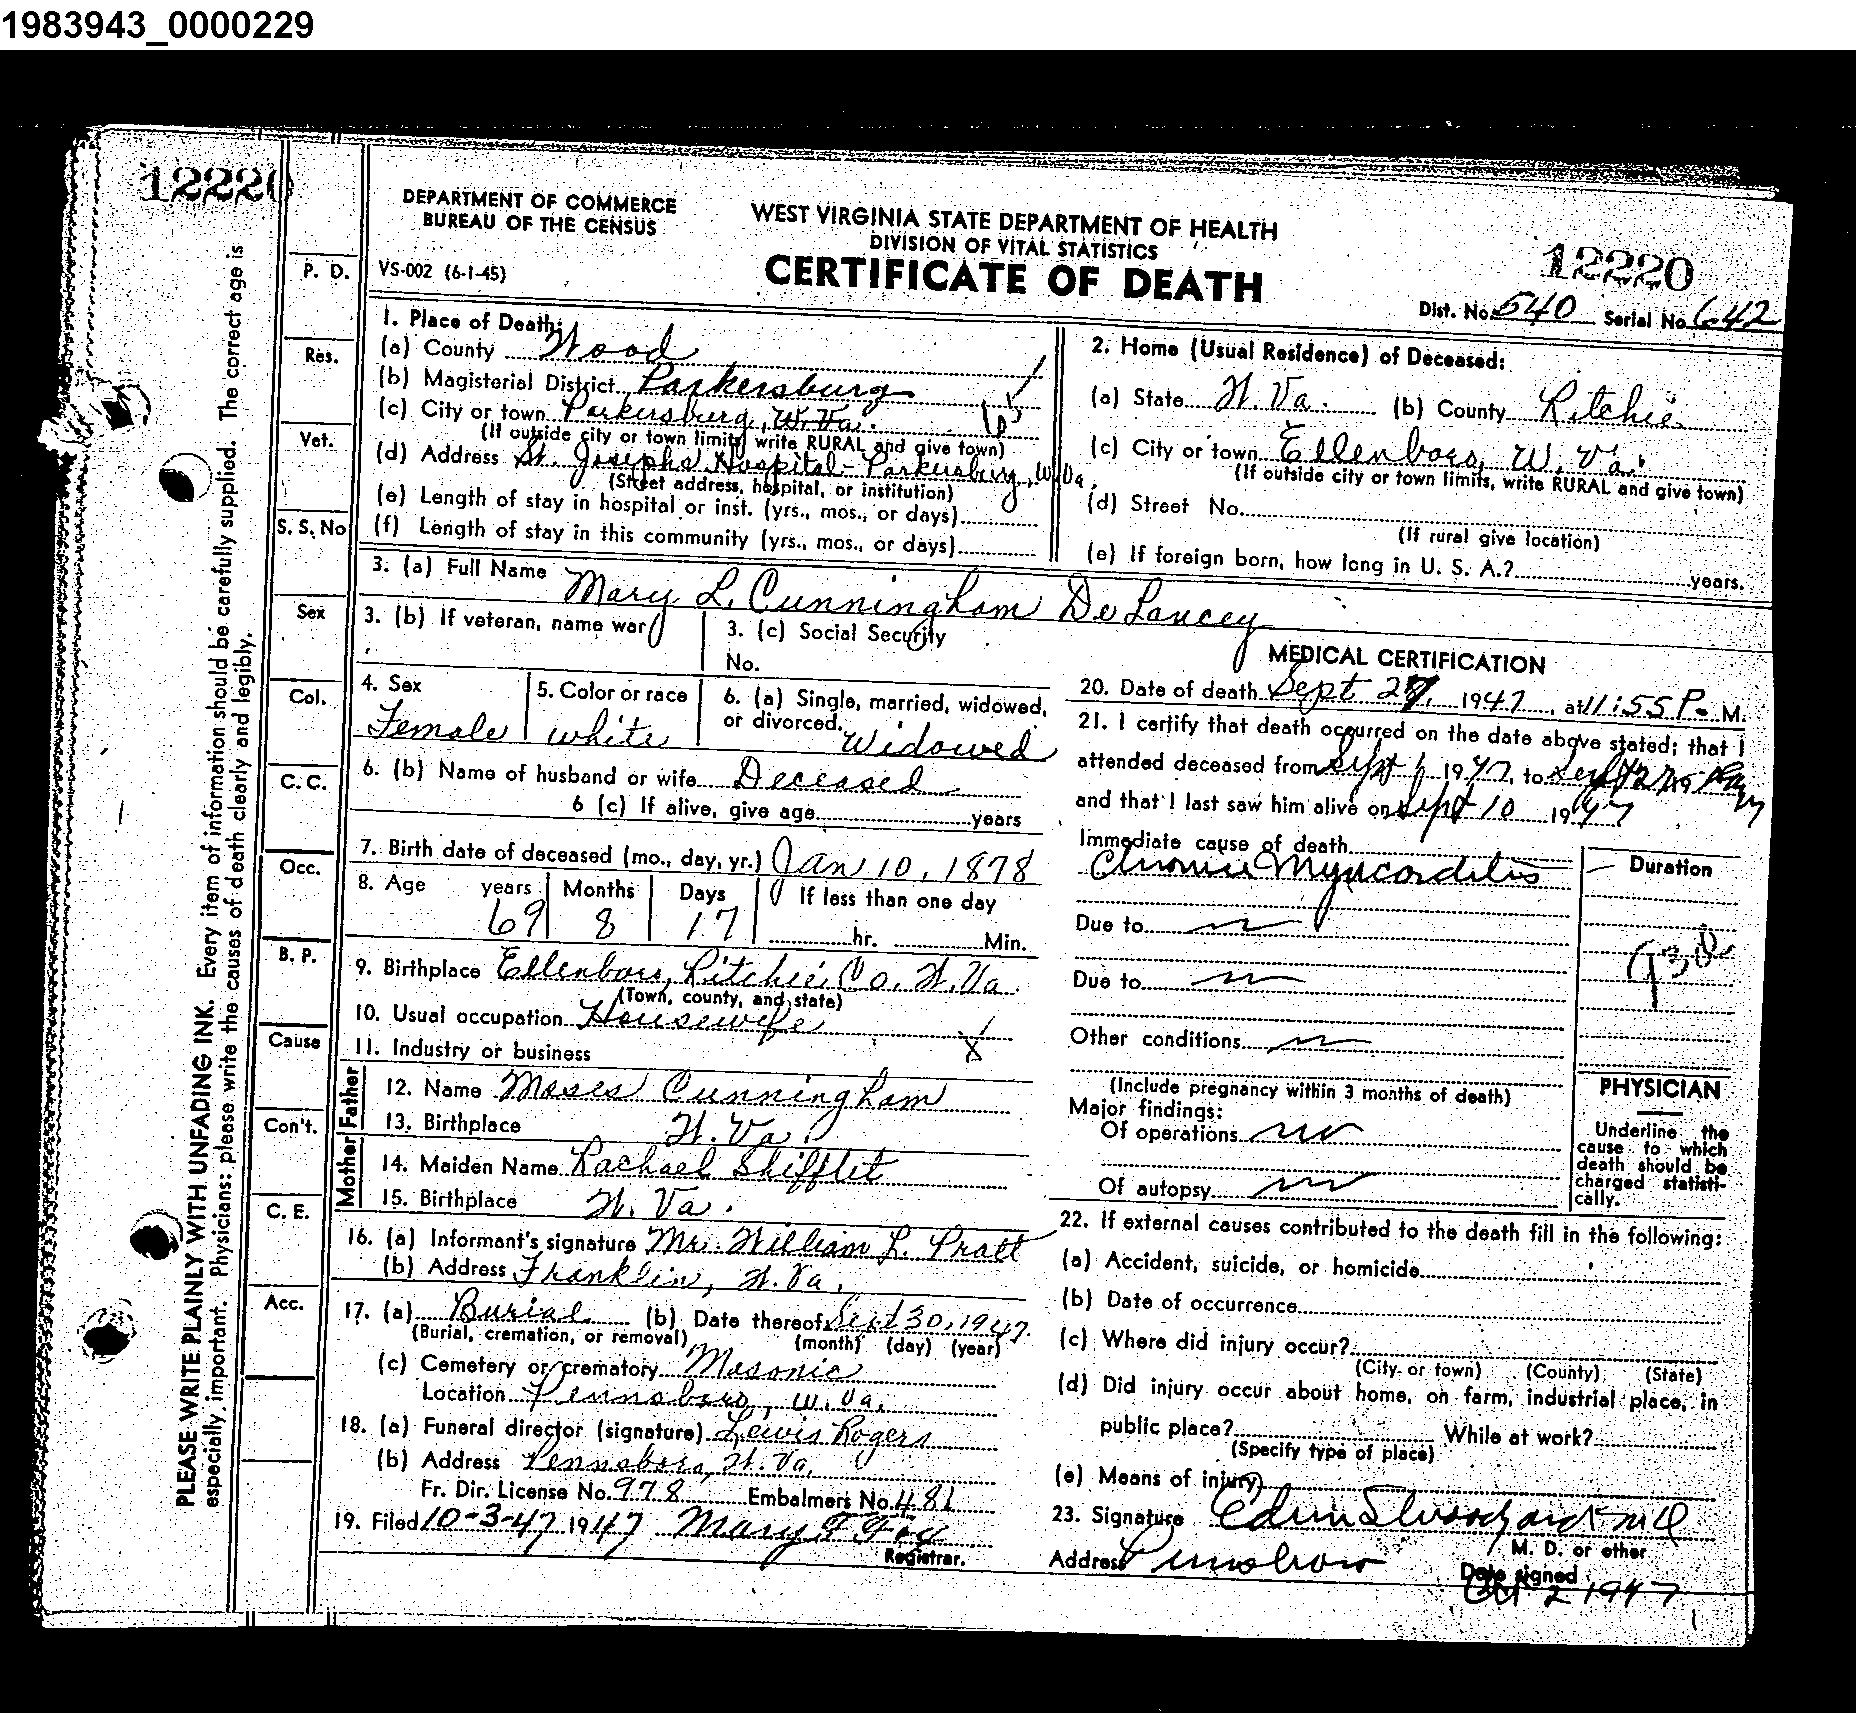 1983943_0000229
12220
DEPARTMENT OF COMMERCE
BUREAU OF THE CENSUS
VS-002 (6-1-45)
WEST VIRGINIA STATE DEPARTMENT OF HEALTH
DIVISION OF VITAL STATISTICS
CERTIFICATE OF DEATH
12220
Dist. No. 540 Serial No. 642
PLEASE WRITE PLAINLY WITH UNFADING INK. Every item of information should be carefully supplied. The correct age is
especially important. Physicians: please write the causes of death clearly and legibly.
P. D.
Res.
Vet.
S. S. No
Sex
Col.
C. C.
Occ.
B. P.
Cause
Con't.
C. E.
Acc.
1. Place of Death:
(a) County Wood
(b) Magisterial District Parkersburg
(c) City or town Parkersburg, W. Va.
(If outside city or town limits, write RURAL and give town)
(d) Address St. Josephs Hospital - Parkersburg, W. Va.
(Street address, hospital, or institution)
(e) Length of stay in hospital or inst. (yrs., mos., or days)
(f) Length of stay in this community (yrs., mos., or days)
2. Home (Usual Residence) of Deceased:
(a) State W. Va. (b) County Ritchie
(c) City or town Ellenboro, W. Va.
(If outside city or town limits, write RURAL and give town)
(d) Street No.
(If rural give location)
(e) If foreign born, how long in U. S. A.? years.
3. (a) Full Name Mary L. Cunningham De Lancey
3. (b) If veteran, name war
3. (c) Social Security
No.
4. Sex
Female
5. Color or race
white
6. (a) Single, married, widowed,
or divorced. Widowed
6. (b) Name of husband or wife Deceased
6 (c) If alive, give age years
7. Birth date of deceased (mo., day, yr.) Jan 10, 1878
8. Age years Months Days If less than one day
69 8 17 hr. Min.
9. Birthplace Ellenboro, Ritchie Co. W. Va.
(Town, county, and state)
10. Usual occupation Housewife
11. Industry or business
Father
12. Name Moses Cunningham
13. Birthplace W. Va.
Mother
14. Maiden Name Rachael Shifflet
15. Birthplace W. Va.
16. (a) Informant's signature Mr. William L. Pratt
(b) Address Franklin, W. Va.
17. (a) Burial (b) Date thereof Sept 30, 1947.
(Burial, cremation, or removal) (month) (day) (year)
(c) Cemetery or crematory Masonic
Location Pennsboro, W. Va.
18. (a) Funeral director (signature) Lewis Rogers
(b) Address Pennsboro, W. Va.
Fr. Dir. License No. 978 Embalmers No. 481
19. Filed 10-3-47 1947 Mary F Fox
Registrar.
MEDICAL CERTIFICATION
20. Date of death Sept 27, 1947, at 11:55 P. M.
21. I certify that death occurred on the date above stated; that I
attended deceased from Sept 1 1947, to Sept
and that I last saw him alive on Sept 10 1947
Immediate cause of death
Chronic Myocarditis
Duration
Due to
Due to
Other conditions
(Include pregnancy within 3 months of death)
Major findings:
Of operations
Of autopsy
PHYSICIAN
Underline the
cause to which
death should be
charged statisti-
cally.
22. If external causes contributed to the death fill in the following:
(a) Accident, suicide, or homicide
(b) Date of occurrence
(c) Where did injury occur?
(City or town) (County) (State)
(d) Did injury occur about home, on farm, industrial place, in
public place? While at work?
(Specify type of place)
(e) Means of injury
23. Signature Edwin S Woodyard M D
M. D. or other
Address Pennsboro
Date signed
Oct 2 1947